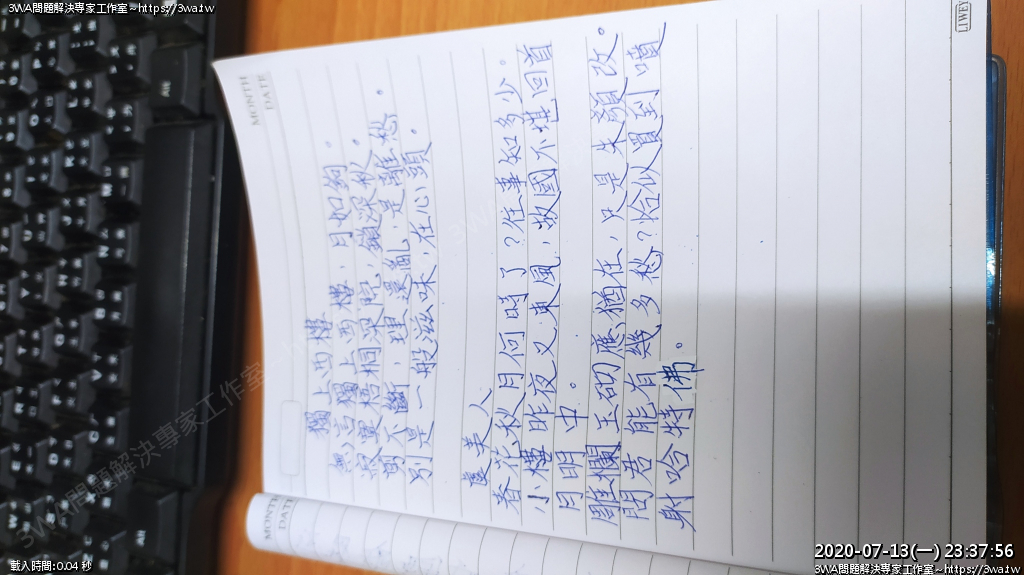 3WA問題解決專家工作室~https://3wa.tw
MONTH
DATE
獨上西樓
無言獨上西樓,月如鉤。
寂寞梧桐深院,鎖深秋。
剪不斷,理還亂,是離愁。
別是一般滋味,在心頭。
虞美人
春花秋月何時了?往事知多少。
小樓昨夜又東風,故國不堪回首
月明中。
雕欄玉砌應猶在,只是朱顏改。
問君能有幾多愁?恰似買到噴
射哈特佛。
MONTH
DATE
3WA問題解決專家工作室
載入時間:0.04 秒
2020-07-13(一) 23:37:56
3WA問題解決專家工作室~https://3wa.tw